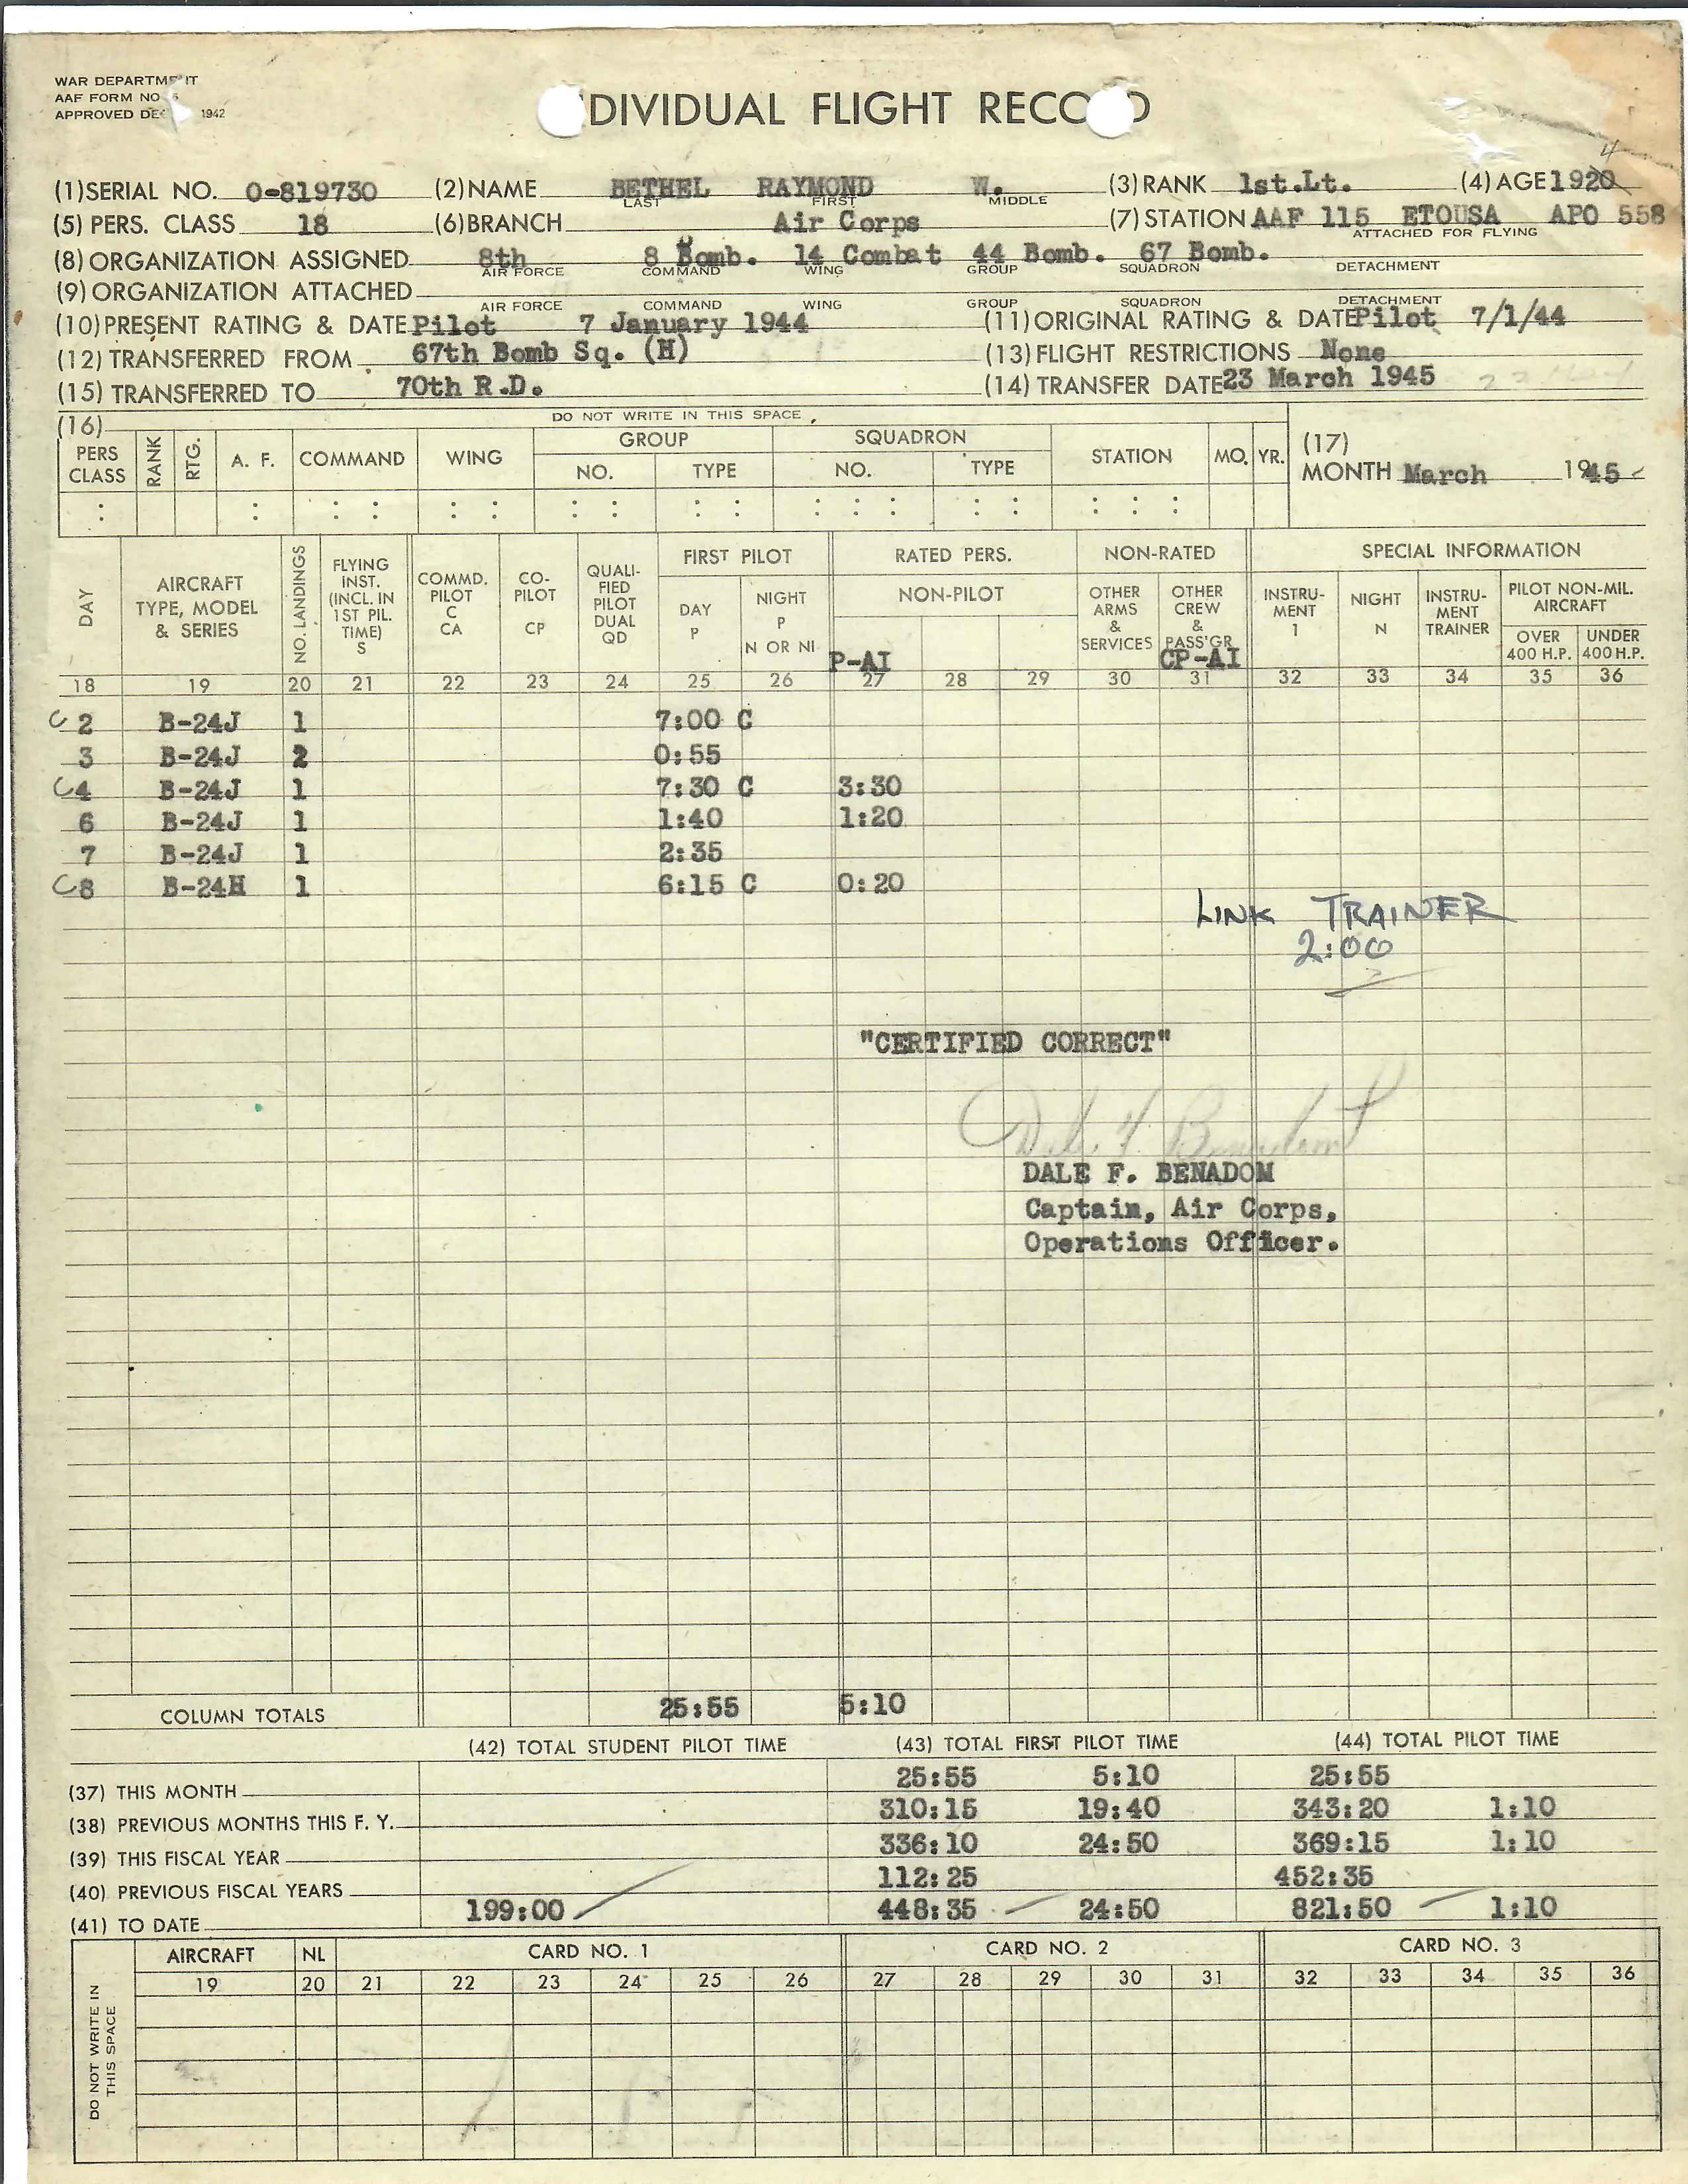 WAR DEPARTMENT
AAF FORM NO. 5
APPROVED DEC 1942
DIVIDUAL FLIGHT RECO D
4
(1) SERIAL NO. O-819730 (2) NAME BETHEL RAYMOND W. (3) RANK 1st.Lt. (4) AGE 1920
LAST FIRST MIDDLE
(5) PERS. CLASS 18 (6) BRANCH Air Corps (7) STATION AAF 115 ETOUSA APO 558
ATTACHED FOR FLYING
(8) ORGANIZATION ASSIGNED 8th 8 Bomb. 14 Combat 44 Bomb. 67 Bomb.
AIR FORCE COMMAND WING GROUP SQUADRON DETACHMENT
(9) ORGANIZATION ATTACHED
AIR FORCE COMMAND WING GROUP SQUADRON DETACHMENT
(10) PRESENT RATING & DATE Pilot 7 January 1944 (11) ORIGINAL RATING & DATE Pilot 7/1/44
(12) TRANSFERRED FROM 67th Bomb Sq. (H) (13) FLIGHT RESTRICTIONS None
(15) TRANSFERRED TO 70th R.D. (14) TRANSFER DATE 23 March 1945
(16) DO NOT WRITE IN THIS SPACE
PERS CLASS RANK RTG. A. F. COMMAND WING GROUP NO. TYPE SQUADRON NO. TYPE STATION MO. YR. (17) MONTH March 1945
DAY AIRCRAFT TYPE, MODEL & SERIES NO. LANDINGS FLYING INST. (INCL. IN 1ST PIL. TIME) S COMMD. PILOT C CA CO-PILOT CP QUALI-FIED PILOT DUAL QD FIRST PILOT DAY P NIGHT P N OR NI RATED PERS. NON-PILOT P-AI NON-RATED OTHER ARMS & SERVICES OTHER CREW & PASS'GR CP-AI SPECIAL INFORMATION INSTRU-MENT I NIGHT N INSTRU-MENT TRAINER PILOT NON-MIL. AIRCRAFT OVER 400 H.P. UNDER 400 H.P.
18 19 20 21 22 23 24 25 26 27 28 29 30 31 32 33 34 35 36
C 2 B-24J 1 7:00 C
3 B-24J 2 0:55
C 4 B-24J 1 7:30 C 3:30
6 B-24J 1 1:40 1:20
7 B-24J 1 2:35
C 8 B-24H 1 6:15 C 0:20
LINK TRAINER
2:00
"CERTIFIED CORRECT"
Dale F. Benadom
DALE F. BENADOM
Captain, Air Corps,
Operations Officer.
COLUMN TOTALS 25:55 5:10
(42) TOTAL STUDENT PILOT TIME (43) TOTAL FIRST PILOT TIME (44) TOTAL PILOT TIME
(37) THIS MONTH 25:55 5:10 25:55
(38) PREVIOUS MONTHS THIS F. Y. 310:15 19:40 343:20 1:10
(39) THIS FISCAL YEAR 336:10 24:50 369:15 1:10
(40) PREVIOUS FISCAL YEARS 112:25 452:35
(41) TO DATE 199:00 448:35 24:50 821:50 1:10
DO NOT WRITE IN THIS SPACE
AIRCRAFT NL CARD NO. 1 CARD NO. 2 CARD NO. 3
19 20 21 22 23 24 25 26 27 28 29 30 31 32 33 34 35 36